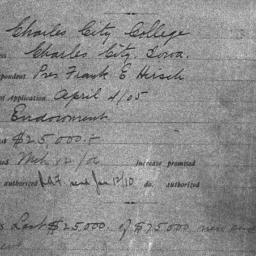 Charles City College
Charles City, Iowa.
pondent Pres Frank E Hirsch
Application April 4/05
Endowment
$25,000.-
Mch 12/06 increase promised
authorized and Jan 12/10 do. authorized
Last $25,000. of $75,000. new